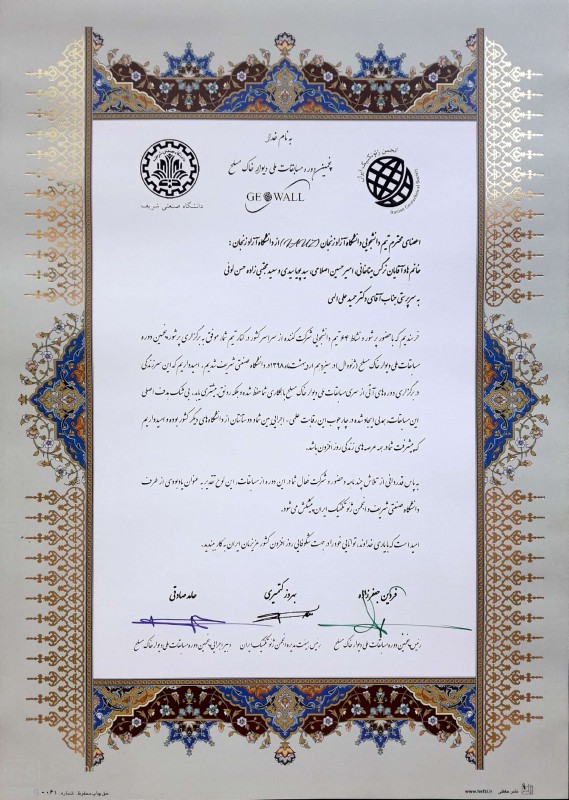 به نام خدا
پنجمین دوره مسابقات ملی دیوار خاک مسلح
GEOWALL
دانشگاه صنعتی شریف
انجمن ژئوتکنیک ایران
Iranian Geotechnical Society
اعضای محترم تیم دانشجویی دانشگاه آزاد زنجان از دانشگاه آزاد زنجان :
خانم ها و آقایان نرگس بیناخائی، امیرحسین اصلاحی، سپیدی و سعید مجتبی زاده حسن لوئی
به سرپرستی جناب آقای دکتر حمید علی الهی
خرسندیم که با حضور پرشور و نشاط ۶۴ تیم دانشجویی شرکت کننده از سراسر کشور در کنار تیم شما، موفق به برگزاری پرشور پنجمین دوره
مسابقات ملی دیوار خاک مسلح (ژئووال) در سیزدهم اردیبهشت ماه ۱۳۹۸ در دانشگاه صنعتی شریف شدیم. امیدواریم که این سرزندگی
در برگزاری دوره های آتی از سری مسابقات ملی دیوار خاک مسلح با همکاری شما حفظ شده و بلکه رونق بیشتری یابد. بی شک هدف اصلی
این مسابقات، همدلی ایجاد شده در چارچوب این رقابت علمی - اجرایی بین شما و دوستانتان از دانشگاه های دیگر کشور بوده و امیدواریم
که پیشرفت شما در همه عرصه های زندگی روز افزون باشد.
به پاس قدردانی از تلاش چند ماهه و حضور و شرکت فعال شما در این دوره از مسابقات، این لوح تقدیر به عنوان یادبودی از طرف
دانشگاه صنعتی شریف و انجمن ژئوتکنیک ایران پیشکش می شود.
امید است که با یاری خداوند، توانایی خود را در جهت شکوفایی روز افزون کشور عزیزمان ایران به کار ببندید.
فردین جعفرزاده
بهروز گتمیری
حامد صادقی
رئیس پنجمین دوره مسابقات ملی دیوار خاک مسلح
رئیس هیئت مدیره انجمن ژئوتکنیک ایران
دبیر اجرایی پنجمین دوره مسابقات ملی دیوار خاک مسلح
نشر حافظی
حق چاپ محفوظ. شماره: ۰۶۱